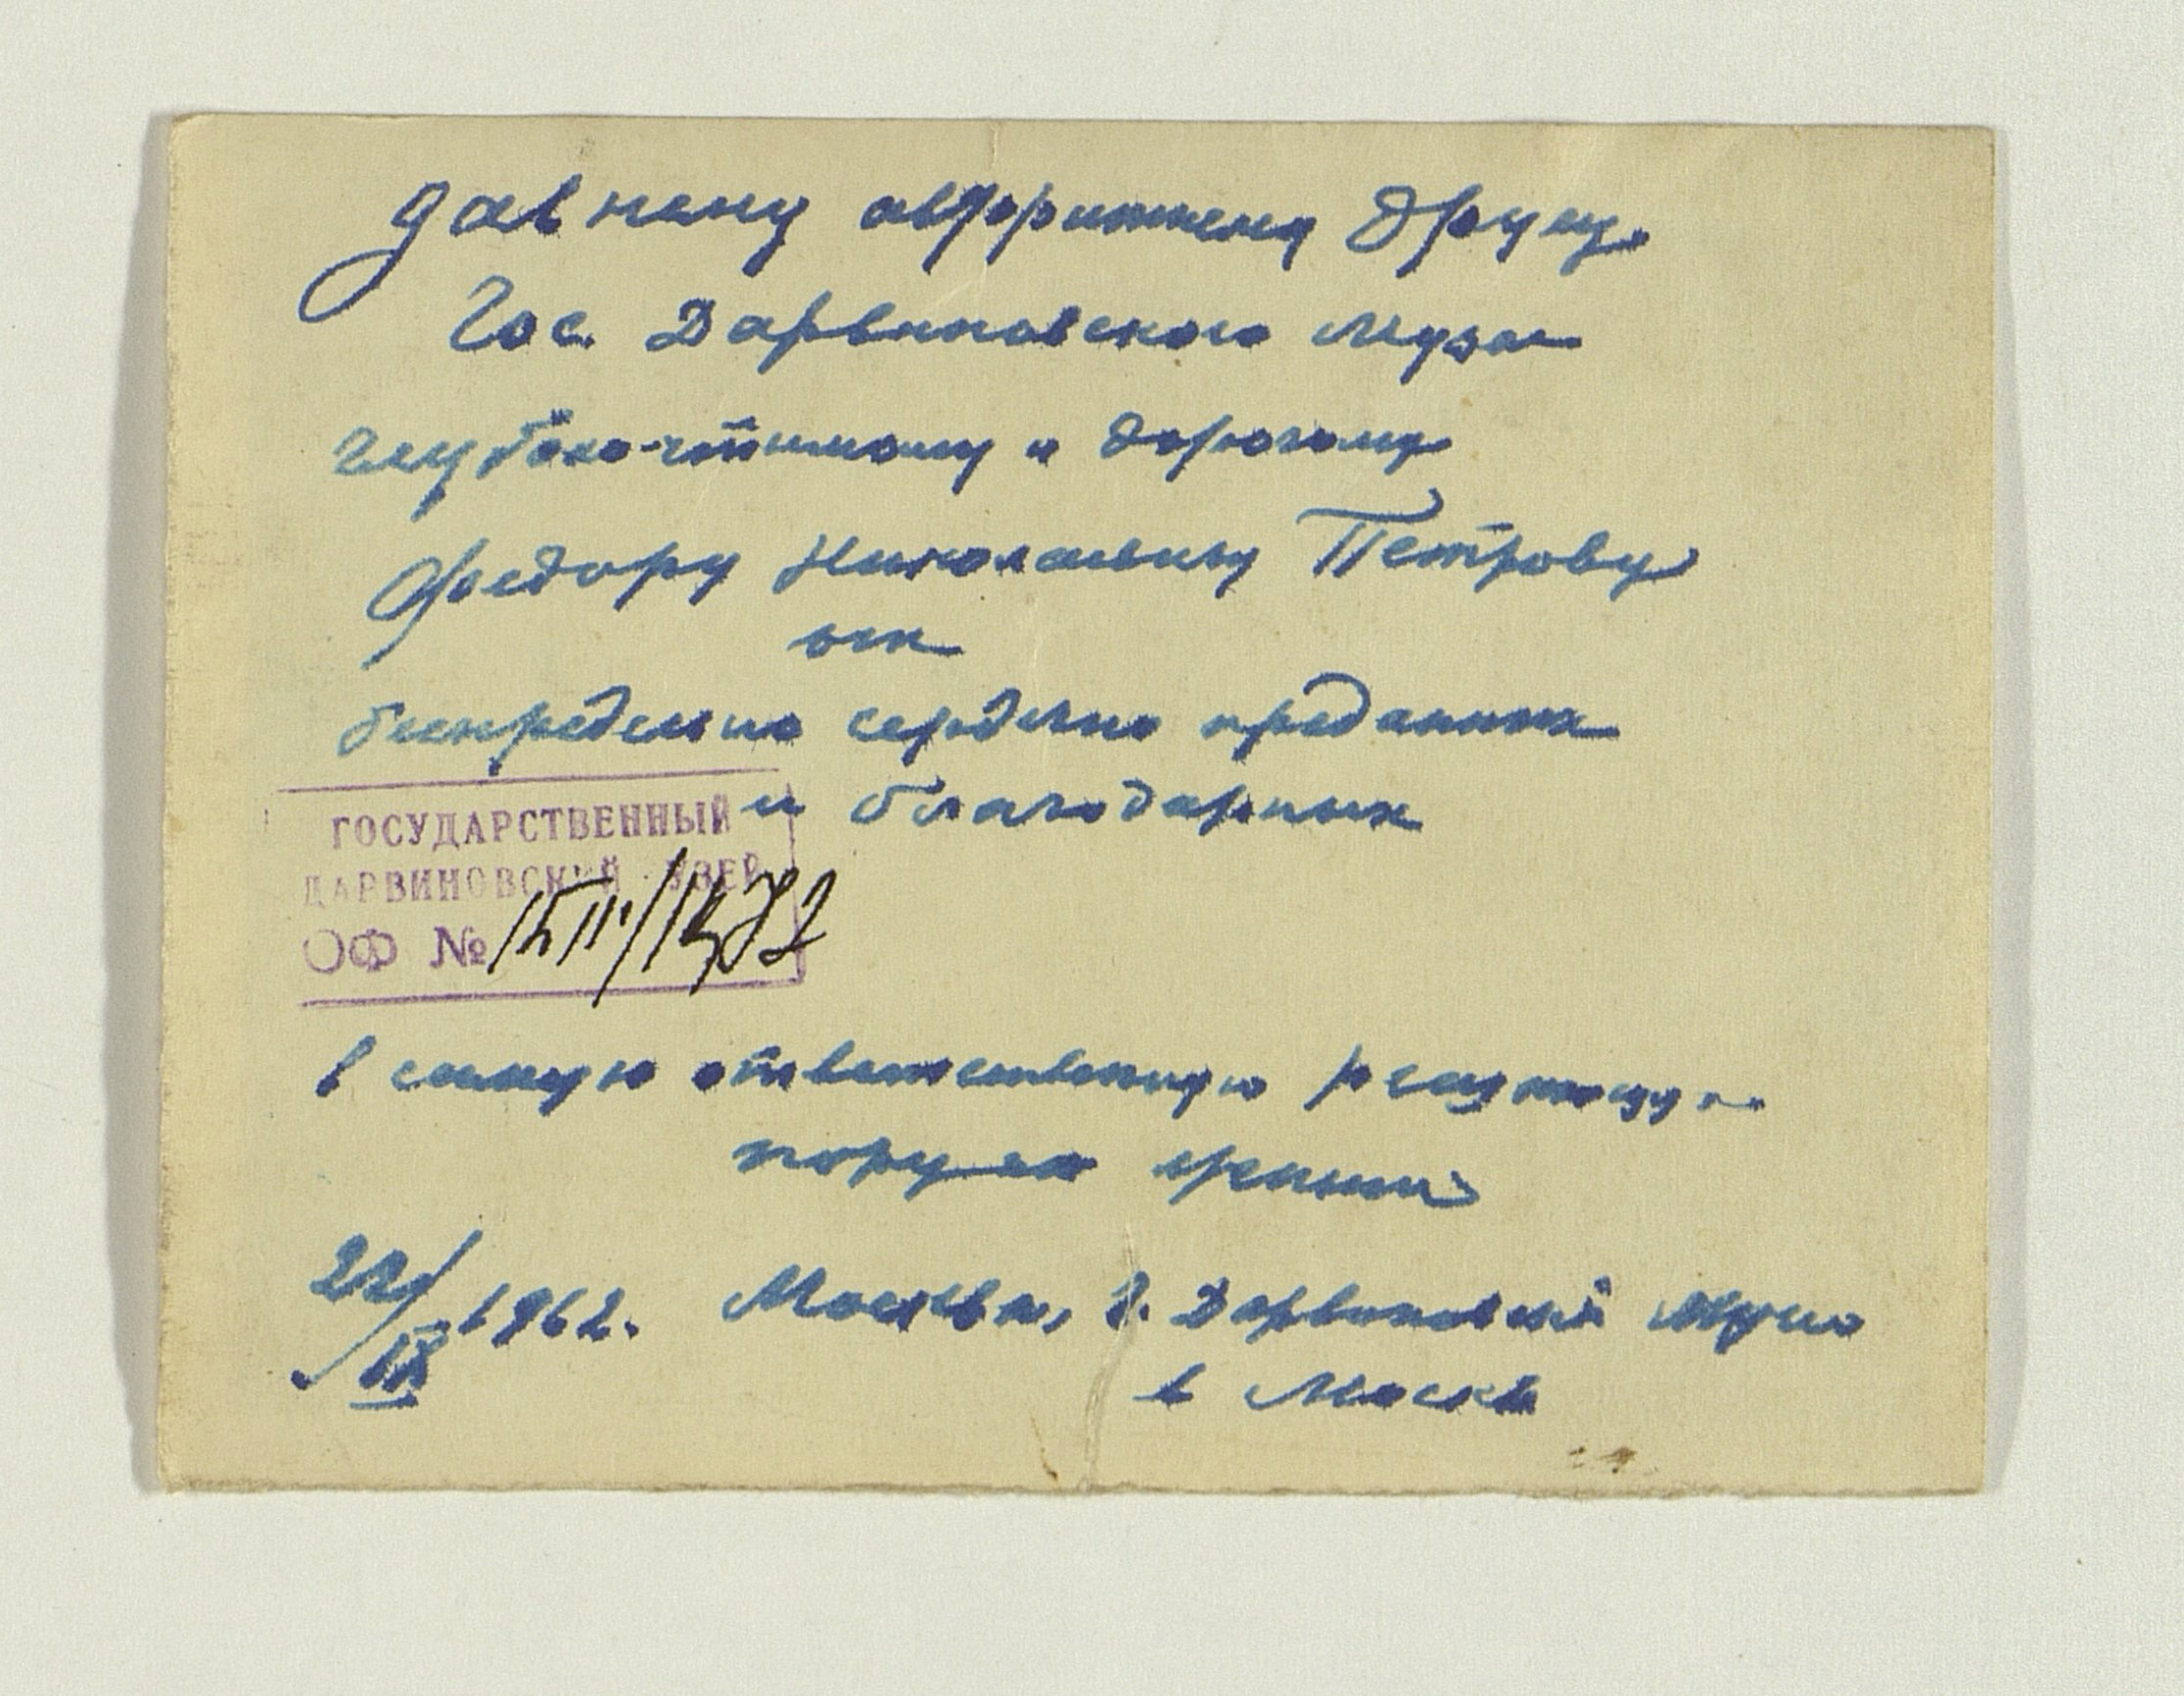 давнему
другу
Гос. Дарвиновского Музея
глубокочтимому и дорогому
Федору Николаевичу Петрову
от
беспредельно сердечно преданных
и благодарных
ГОСУДАРСТВЕННЫЙ
ДАРВИНОВСКИЙ МУЗЕЙ
ОФ №
в самую ответственную
пору его жизни
22/IX 1962. Москва, Г. Дарвиновский Музей
в Москве